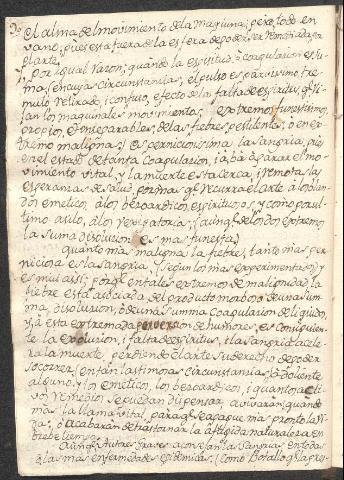 el alma del movimiento de la maquina; pero todo en
vano; pues esta fuera de la esfera de poder ser remediada por
el arte.
Y por igual razon; quando la espisitud, o coagulacion es su-
ma, en cuyas circunstancias, el pulso es parvissimo, tre-
mulo, retirado, i confuso, efecto de la falta de espiritus, qe
los maquinales movimientos; extremos funestissimos
propios, e inseparables de las fiebres pestilentes, o en ex-
tremo malignas; es perniciosissima la sangria, pues
en el estado de tanta coagulacion, ia, ba à parar el mo-
vimiento vital, y la muerte esta cerca, i remotas las
esperanzas de salud, por mas qe recurra el arte à los
emetico, à los bezoardicos, espirituosos, y como por ul-
timo asilo, à los vexigatorios; aunqe de los dos extremos
la suma disolucion es mas funesta.
Quanto mas maligna la fiebre, tanto mas per-
niciosa es la sangria, (segun los mas experimentados) y
es mui assi; porqe en tales extremos de malignidad, la
fiebre esta asociada del producto morboso de una suma
disolucion, ò de una summa coagulacion del liquido,
y, à esta extremada perversion de humores, es consiguien-
te la evolucion, i falta de espiritus, i la sangria acele-
ra la muerte, perdiendo el arte su derecho de poder
socorrer, en tan lastimosas circunstancias, al doliente
alguno. y los emetico, los bezoardicos, i quanto acti-
vo remedio se puedan dispensar, avivaràn, quando
mas la llama vital, para qe se apague mas pronto la vi-
da, o acabaran de trastornar la afligida naturaleza en
brebe tiempo.
Aunqe Autores graves aconsejan las sangrias en todas
ò las mas enfermedades epidemicas; (como Botallo